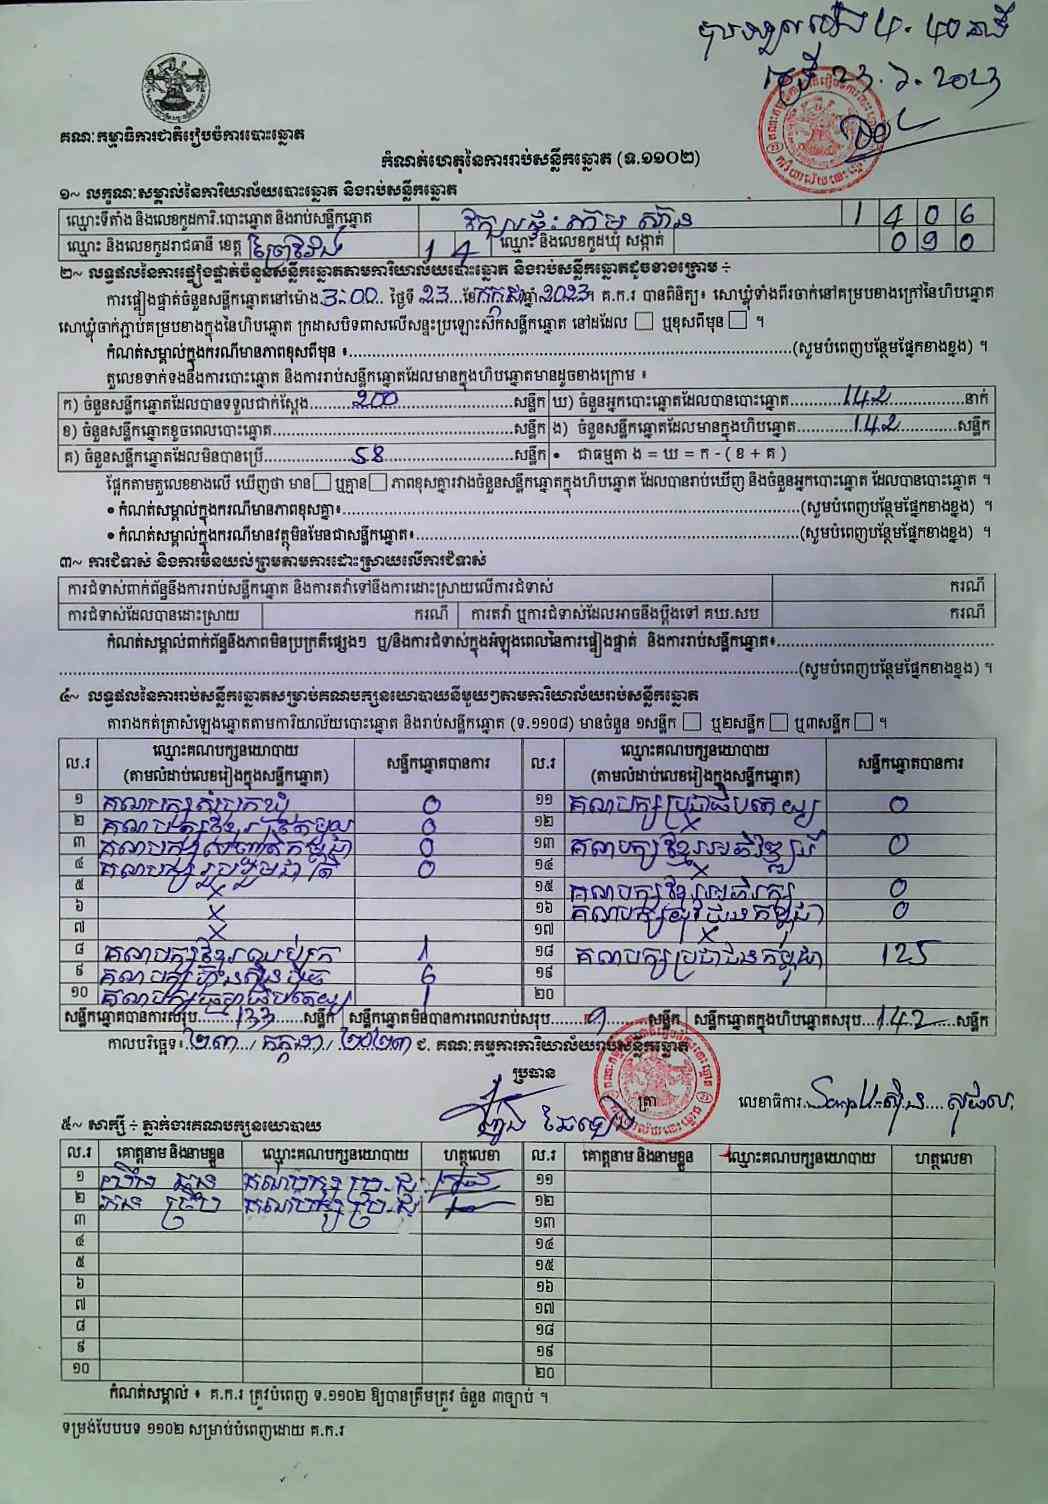 គណៈកម្មាធិការជាតិរៀបចំការបោះឆ្នោត
កំណត់ហេតុនៃការរាប់សន្លឹកឆ្នោត (ទ.១១០២)
១~ លក្ខណៈសម្គាល់នៃការិយាល័យបោះឆ្នោត និងរាប់សន្លឹកឆ្នោត
ឈ្មោះទីតាំង និងលេខកូដការិ.បោះឆ្នោត និងរាប់សន្លឹកឆ្នោត 1 4 0 6
ឈ្មោះ និងលេខកូដរាជធានី ខេត្ត ព្រៃវែង 1 4 ឈ្មោះ និងលេខកូដឃុំ សង្កាត់ 0 9 0
២~ លទ្ធផលនៃការផ្ទៀងផ្ទាត់ចំនួនសន្លឹកឆ្នោតតាមការិយាល័យបោះឆ្នោត និងរាប់សន្លឹកឆ្នោតដូចខាងក្រោម ÷
ការផ្ទៀងផ្ទាត់ចំនួនសន្លឹកឆ្នោតនៅម៉ោង 3:00 ថ្ងៃទី 23 ខែ កក្កដា ឆ្នាំ 2023។ គ.ក.រ បានពិនិត្យ៖ សោឃ្លុំទាំងពីរចាក់នៅគម្របខាងក្រៅនៃហិបឆ្នោត
សោឃ្លុំចាក់ភ្ជាប់គម្របខាងក្នុងនៃហិបឆ្នោត ក្រដាសបិទពាសលើសន្ទះប្រឡោះស៊កសន្លឹកឆ្នោត នៅដដែល ☐ ឬខុសពីមុន ☐ ។
កំណត់សម្គាល់ក្នុងករណីមានភាពខុសពីមុន ៖..........(សូមបំពេញបន្ថែមផ្នែកខាងខ្នង) ។
តួលេខទាក់ទងនឹងការបោះឆ្នោត និងការរាប់សន្លឹកឆ្នោតដែលមានក្នុងហិបឆ្នោតមានដូចខាងក្រោម ៖
ក) ចំនួនសន្លឹកឆ្នោតដែលបានទទួលជាក់ស្តែង 200 សន្លឹក ឃ) ចំនួនអ្នកបោះឆ្នោតដែលបានបោះឆ្នោត 142 នាក់
ខ) ចំនួនសន្លឹកឆ្នោតខូចពេលបោះឆ្នោត..........សន្លឹក ង) ចំនួនសន្លឹកឆ្នោតដែលមានក្នុងហិបឆ្នោត 142 សន្លឹក
គ) ចំនួនសន្លឹកឆ្នោតដែលមិនបានប្រើ 58 សន្លឹក • ជាធម្មតា ង = ឃ = ក - ( ខ + គ )
ផ្អែកតាមតួលេខខាងលើ ឃើញថា មាន ☐ ឬគ្មាន ☐ ភាពខុសគ្នារវាងចំនួនសន្លឹកឆ្នោតក្នុងហិបឆ្នោត ដែលបានរាប់ឃើញ និងចំនួនអ្នកបោះឆ្នោត ដែលបានបោះឆ្នោត ។
• កំណត់សម្គាល់ក្នុងករណីមានភាពខុសគ្នា៖..........(សូមបំពេញបន្ថែមផ្នែកខាងខ្នង) ។
• កំណត់សម្គាល់ក្នុងករណីមានវត្ថុមិនមែនជាសន្លឹកឆ្នោត៖..........(សូមបំពេញបន្ថែមផ្នែកខាងខ្នង) ។
៣~ ការជំទាស់ និងការមិនយល់ព្រមតាមការដោះស្រាយលើការជំទាស់
ការជំទាស់ពាក់ព័ន្ធនឹងការរាប់សន្លឹកឆ្នោត និងការតវ៉ាទៅនឹងការដោះស្រាយលើការជំទាស់ ករណី
ការជំទាស់ដែលបានដោះស្រាយ ករណី ការតវ៉ា ឬការជំទាស់ដែលអាចនឹងប្តឹងទៅ គឃ.សប ករណី
កំណត់សម្គាល់ពាក់ព័ន្ធនឹងភាពមិនប្រក្រតីផ្សេងៗ ឬ/និងការជំទាស់ក្នុងអំឡុងពេលនៃការផ្ទៀងផ្ទាត់ និងការរាប់សន្លឹកឆ្នោត៖..........
..........(សូមបំពេញបន្ថែមផ្នែកខាងខ្នង) ។
៤~ លទ្ធផលនៃការរាប់សន្លឹកឆ្នោតសម្រាប់គណបក្សនយោបាយនីមួយៗតាមការិយាល័យរាប់សន្លឹកឆ្នោត
តារាងកត់ត្រាសំឡេងឆ្នោតតាមការិយាល័យបោះឆ្នោត និងរាប់សន្លឹកឆ្នោត (ទ.១១០៨) មានចំនួន ១សន្លឹក ☐ ឬ២សន្លឹក ☐ ឬ៣សន្លឹក ☐ ។
ល.រ ឈ្មោះគណបក្សនយោបាយ (តាមលំដាប់លេខរៀងក្នុងសន្លឹកឆ្នោត) សន្លឹកឆ្នោតបានការ ល.រ ឈ្មោះគណបក្សនយោបាយ (តាមលំដាប់លេខរៀងក្នុងសន្លឹកឆ្នោត) សន្លឹកឆ្នោតបានការ
១ គណបក្សសំបុកឃ្មុំ 0 ១១ គណបក្សប្រជាធិបតេយ្យ 0
២ គណបក្ស 0 ១២ ×
៣ គណបក្ស កម្ពុជា 0 ១៣ គណបក្សខ្មែរអភិវឌ្ឍ 0
៤ គណបក្សរួបរួមជាតិ 0 ១៤ ×
៥ × ១៥ គណបក្សខ្មែរ 0
៦ × ១៦ គណបក្សយុវជនកម្ពុជា 0
៧ × ១៧ ×
៨ គណបក្សខ្មែរ 1 ១៨ គណបក្សប្រជាជនកម្ពុជា 125
៩ គណបក្សហ្វ៊ុនស៊ិនប៉ិច 6 ១៩
១០ គណបក្ស 1 ២០
សន្លឹកឆ្នោតបានការសរុប 133 សន្លឹក សន្លឹកឆ្នោតមិនបានការពេលរាប់សរុប 9 សន្លឹក សន្លឹកឆ្នោតក្នុងហិបឆ្នោតសរុប 142 សន្លឹក
កាលបរិច្ឆេទ៖ ២៣ / កក្កដា / ២០២៣ ជ. គណៈកម្មការការិយាល័យរាប់សន្លឹកឆ្នោត
ប្រធាន
ត្រា លេខាធិការ
៥~ សាក្សី ÷ ភ្នាក់ងារគណបក្សនយោបាយ
ល.រ គោត្តនាម និងនាមខ្លួន ឈ្មោះគណបក្សនយោបាយ ហត្ថលេខា ល.រ គោត្តនាម និងនាមខ្លួន ឈ្មោះគណបក្សនយោបាយ ហត្ថលេខា
១ គណបក្ស ប្រ.ជ ១១
២ គណបក្ស ប្រ.ជ ១២
៣ ១៣
៤ ១៤
៥ ១៥
៦ ១៦
៧ ១៧
៨ ១៨
៩ ១៩
១០ ២០
កំណត់សម្គាល់ ៖ គ.ក.រ ត្រូវបំពេញ ទ.១១០២ ឱ្យបានត្រឹមត្រូវ ចំនួន ៣ច្បាប់ ។
ទម្រង់បែបបទ ១១០២ សម្រាប់បំពេញដោយ គ.ក.រ